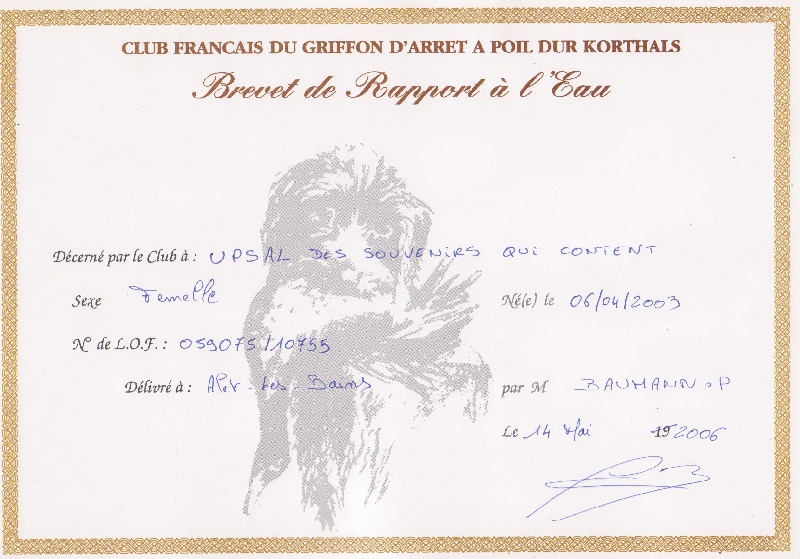 CLUB FRANCAIS DU GRIFFON D'ARRET A POIL DUR KORTHALS
Brevet de Rapport à l'Eau
Décerné par le Club à : UPSAL DES SOUVENIRS QUI CONTENT
Sexe Femelle Né(e) le 06/04/2003
N° de L.O.F. : 059075/10755
Délivré à : Alet-Les-Bains par M BAUMANN.P
Le 14 Mai 19 2006